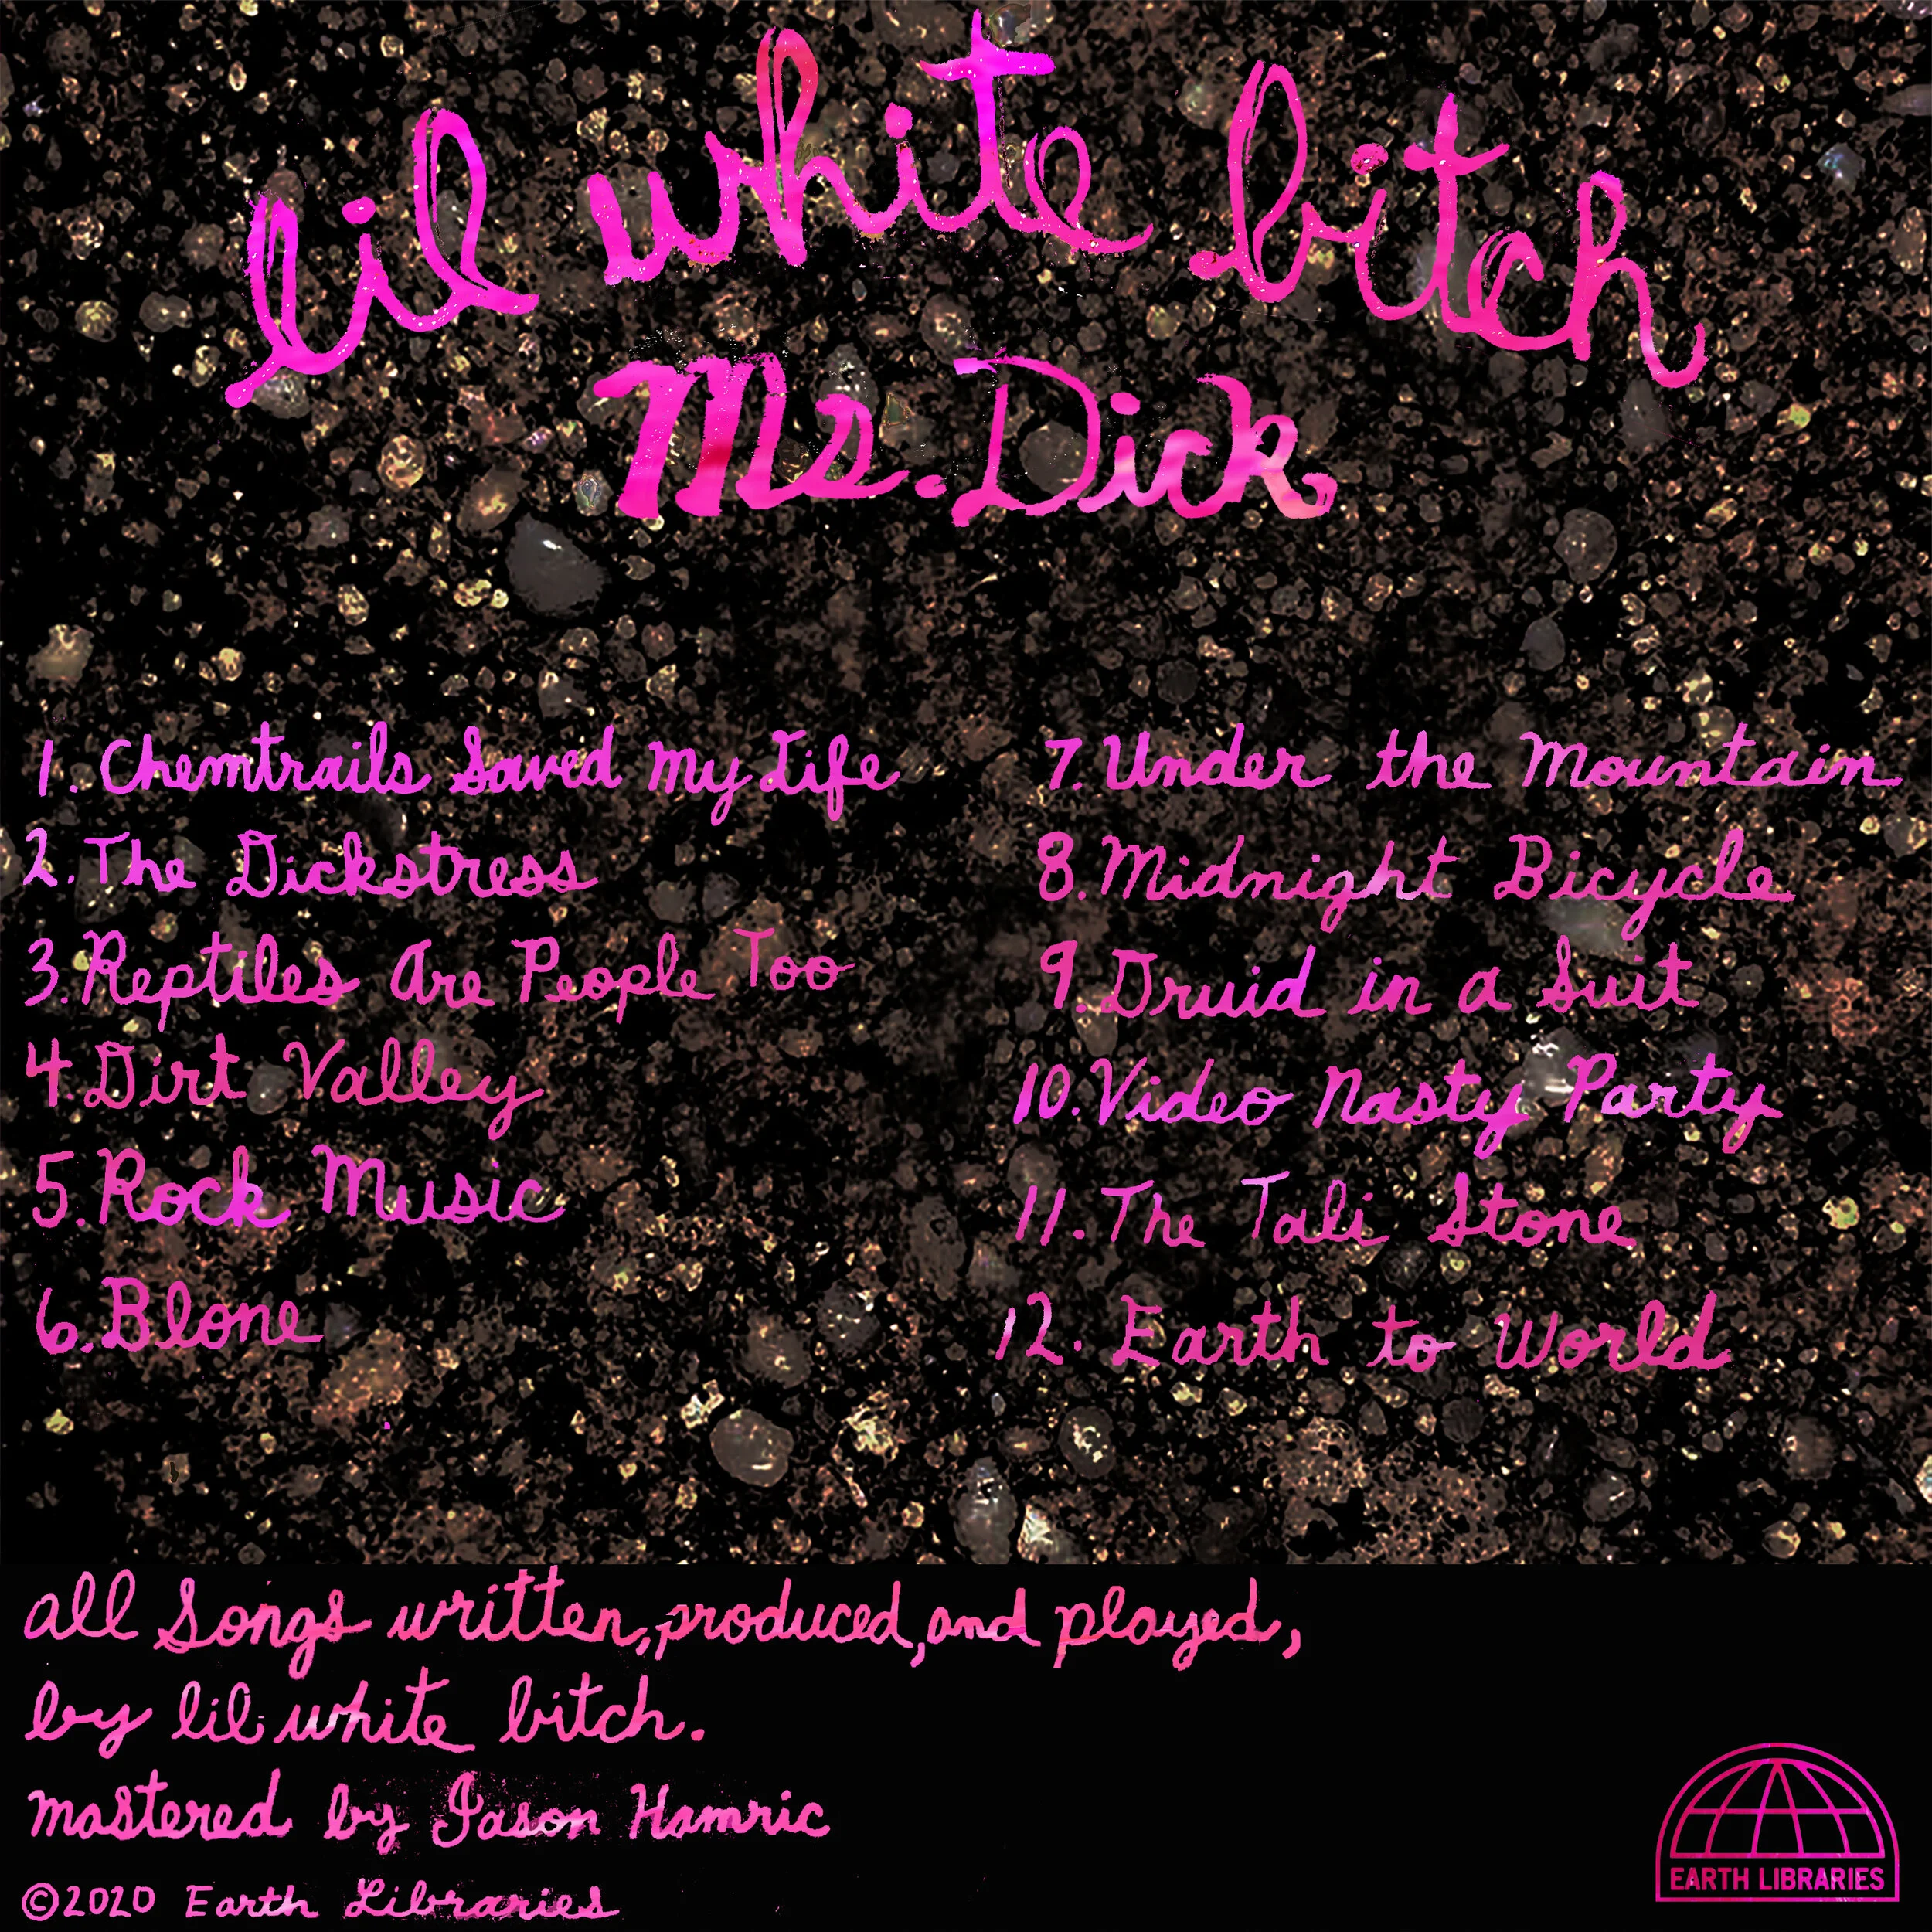 lil white bitch
Ms. Dick
1. Chemtrails Saved My Life
2. The Dickstress
3. Reptiles Are People Too
4. Dirt Valley
5. Rock Music
6. Blone
7. Under the Mountain
8. Midnight Bicycle
9. Druid in a Suit
10. Video Nasty Party
11. The Tali Stone
12. Earth to World
all songs written, produced, and played,
by lil white bitch.
mastered by Jason Hamric
©2020 Earth Libraries
EARTH LIBRARIES